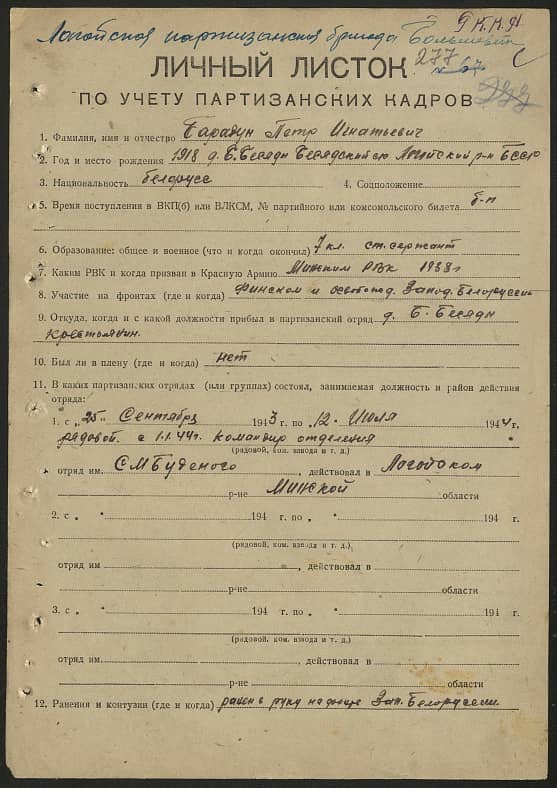 Логойская партизанская бригада Большевик
277
ЛИЧНЫЙ ЛИСТОК
ПО УЧЕТУ ПАРТИЗАНСКИХ КАДРОВ
1. Фамилия, имя и отчество Барадун Петр Игнатьевич
2. Год и место рождения 1918 д. Б. Беседы Бесядский с/с Логойский р-н БССР
3. Национальность белорусс 4. Соцположение
5. Время поступления в ВКП(б) или ВЛКСМ, № партийного или комсомольского билета б-п
6. Образование: общее и военное (что и когда окончил) 7 кл. ст. сержант
7. Каким РВК и когда призван в Красную Армию Минским РВК 1938 г
8. Участие на фронтах (где и когда) Финском и освобод. Запад. Белоруссии
9. Откуда, когда и с какой должности прибыл в партизанский отряд д. Б. Бесяды
Крестьянин.
10. Был ли в плену (где и когда) нет
11. В каких партизанских отрядах (или группах) состоял, занимаемая должность и район действия
отряда:
1. с „25" Сентября 1943 г. по „12" Июля 1944 г.
рядовой с 1.1.44 г. командир отделения
(рядовой, ком. взвода и т. д.)
отряд им. СМ Буденого, действовал в Логойском
р-не Минской области
2. с „ " 194 г. по „ " 194 г.
(рядовой, ком. взвода и т. д.)
отряд им. , действовал в
р-не области
3. с „ " 194 г. по „ " 194 г.
(рядовой, ком. взвода и т. д.)
отряд им. , действовал в
р-не области
12. Ранения и контузии (где и когда) ранен в руку на Зап. Белоруссии